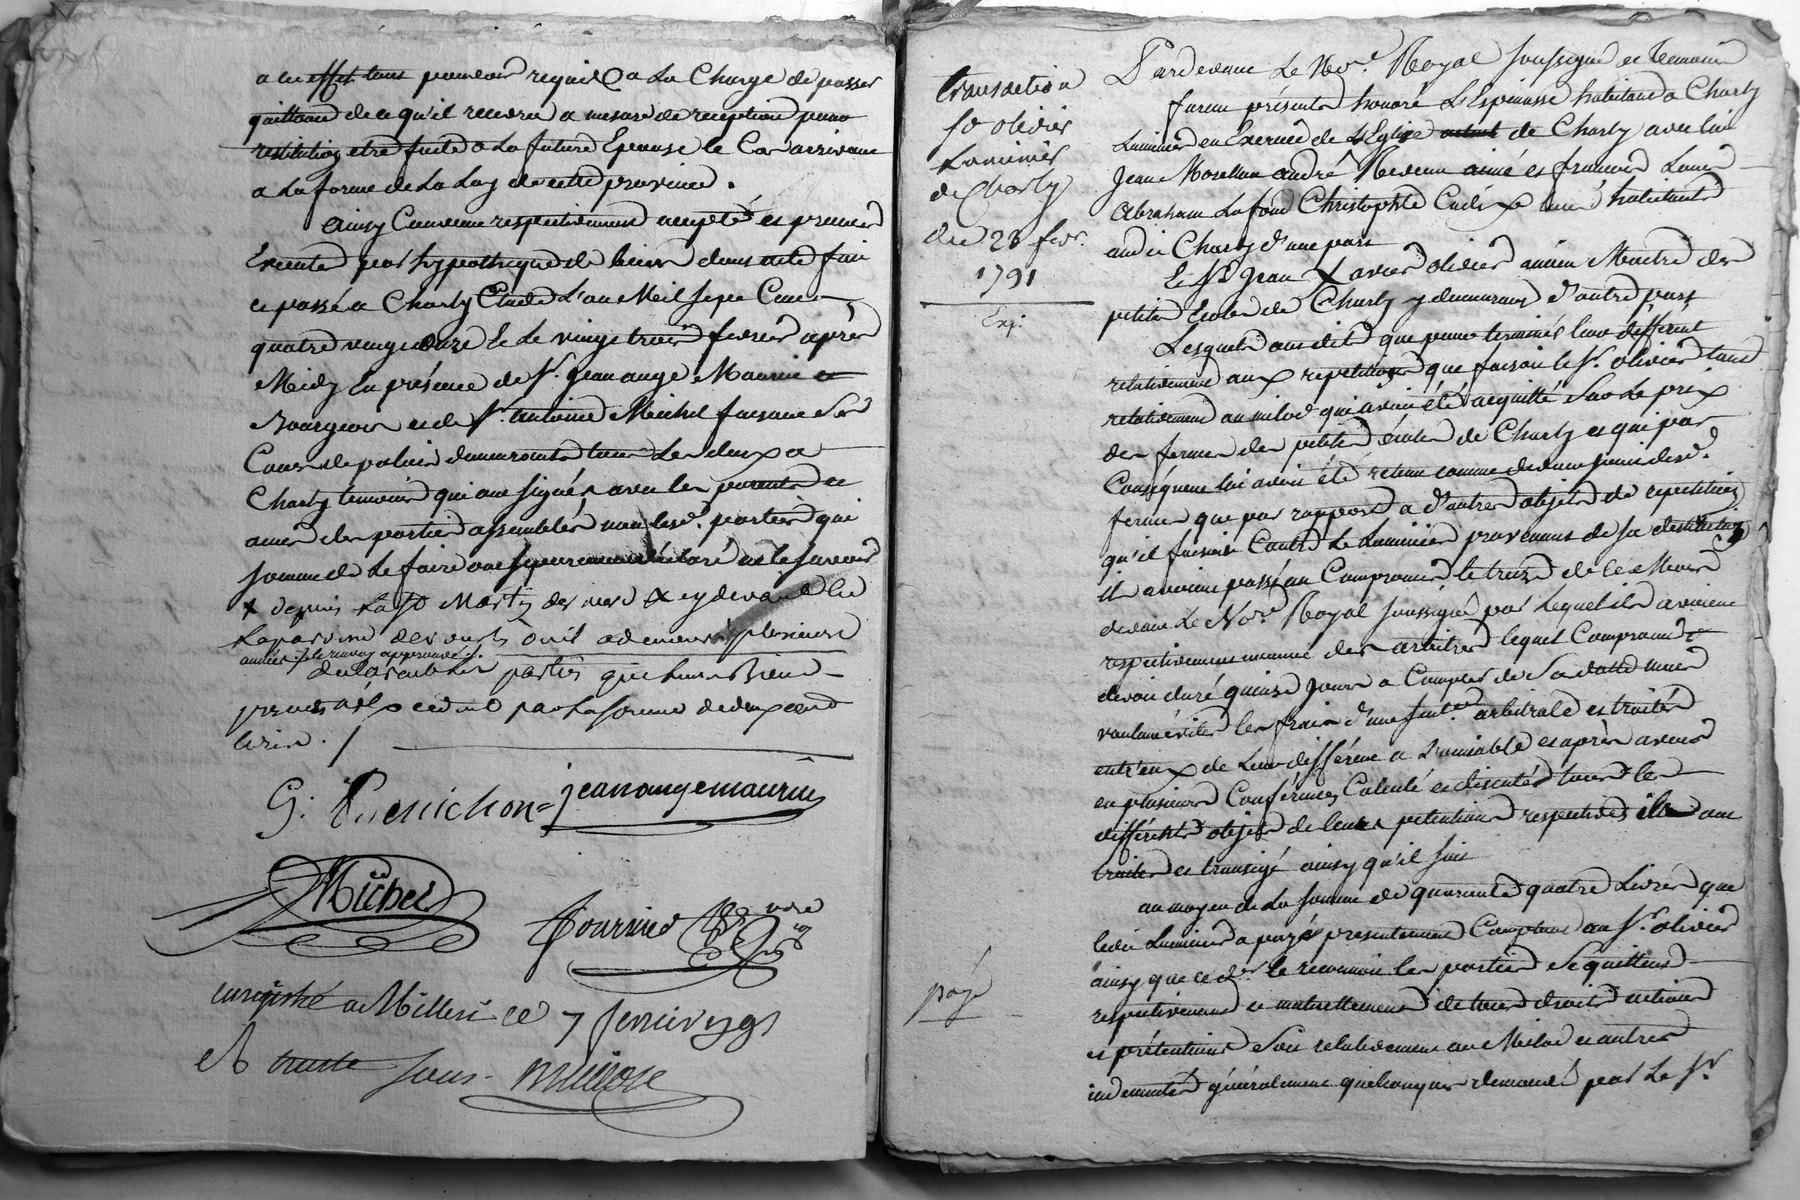 a cet effet tous pouvoirs requis a La Charge de passer
quittance de ce qu'il recevra a mesure de reception pour
restitution etre faite a La future Epouse le Cas arrivant
a La forme de La Loy de cette province.
ainsy Convenu respectivement accepté et promis
Executé par hypotheque de biens dont acte fait
et passé a Charly Etude L'an Mil sept Cent
quatre vingt onze Et Le vingt trois fevrier après
Midy En présence de Sr. jean ange Maurin
Bourgeois et de Sr. antoine Michel faisant Son
Cours de palais demeurants tous Les deux a
Charly temoins qui ont signé avec les parents et
amis des parties assemblés non lesd. parties qui
sommées de Le faire ont déclaré ne le savoir
depuis La St Martin
annees
parties que
par La somme de deux cent
livres. /
G. Penichon jeanangemaurin
Michel
fournier nore
enregistré a Milleri ce 7 fevrier 1791
trente sous.
transaction
Sr olivier
Luminier
de Charly
du 23 fevr.
1791
Exp.
Pardevant Le Nore. Royal soussigné et temoins
furent présents honoré L'Espinasse habitant a Charly
Luminier en Exercice de L'Eglise de Charly avec lui
Jean Morellon andré ainé et
Abraham Lafond Christophe habitants
audit Charly d'une part
Et Sr Jean Xavier olivier ancien Maitre des
petites Ecoles de Charly y demeurant d'autre part
Lesquels ont dit que pour terminer leur différent
relativement aux repetitions que faisoit le Sr. olivier tant
relativement au milod qui avoit été acquitté Sur Le prix
des fermes des petites écoles de Charly et qui par
Conséquent lui avoit été retenu comme
fermes que par rapport a d'autres objets de repetitions
qu'il faisoit Contre Le Luminier provenant de sa destitution
ils avoient passé un Compromis le treize de ce Mois
devant Le Nore. Royal soussigné par Lequel ils avoient
respectivement nommé des arbitres lequel Compromis
devoit duré quinze Jours a Compter de Sa datte mais
voulant éviter les frais d'une sentce. arbitrale et traiter
entr'eux de Leur différent a L'amiable et après avoir
en plusieurs Conférences Calculé et discuté tous les
différents objets de leurs petentions respectives ils ont
traité et transigé ainsy qu'il suit
au moyen de La somme de quarante quatre Livres que
ledit Luminier a payé presentement Comptant au Sr. olivier
ainsy que ce dr. le reconnoit les parties Se quittent
respectivement et mutuellement de tous droits actions
et prétentions Soit relativement au Milod et autres
indemnités généralement quelconques demandé par Le Sr.
payé